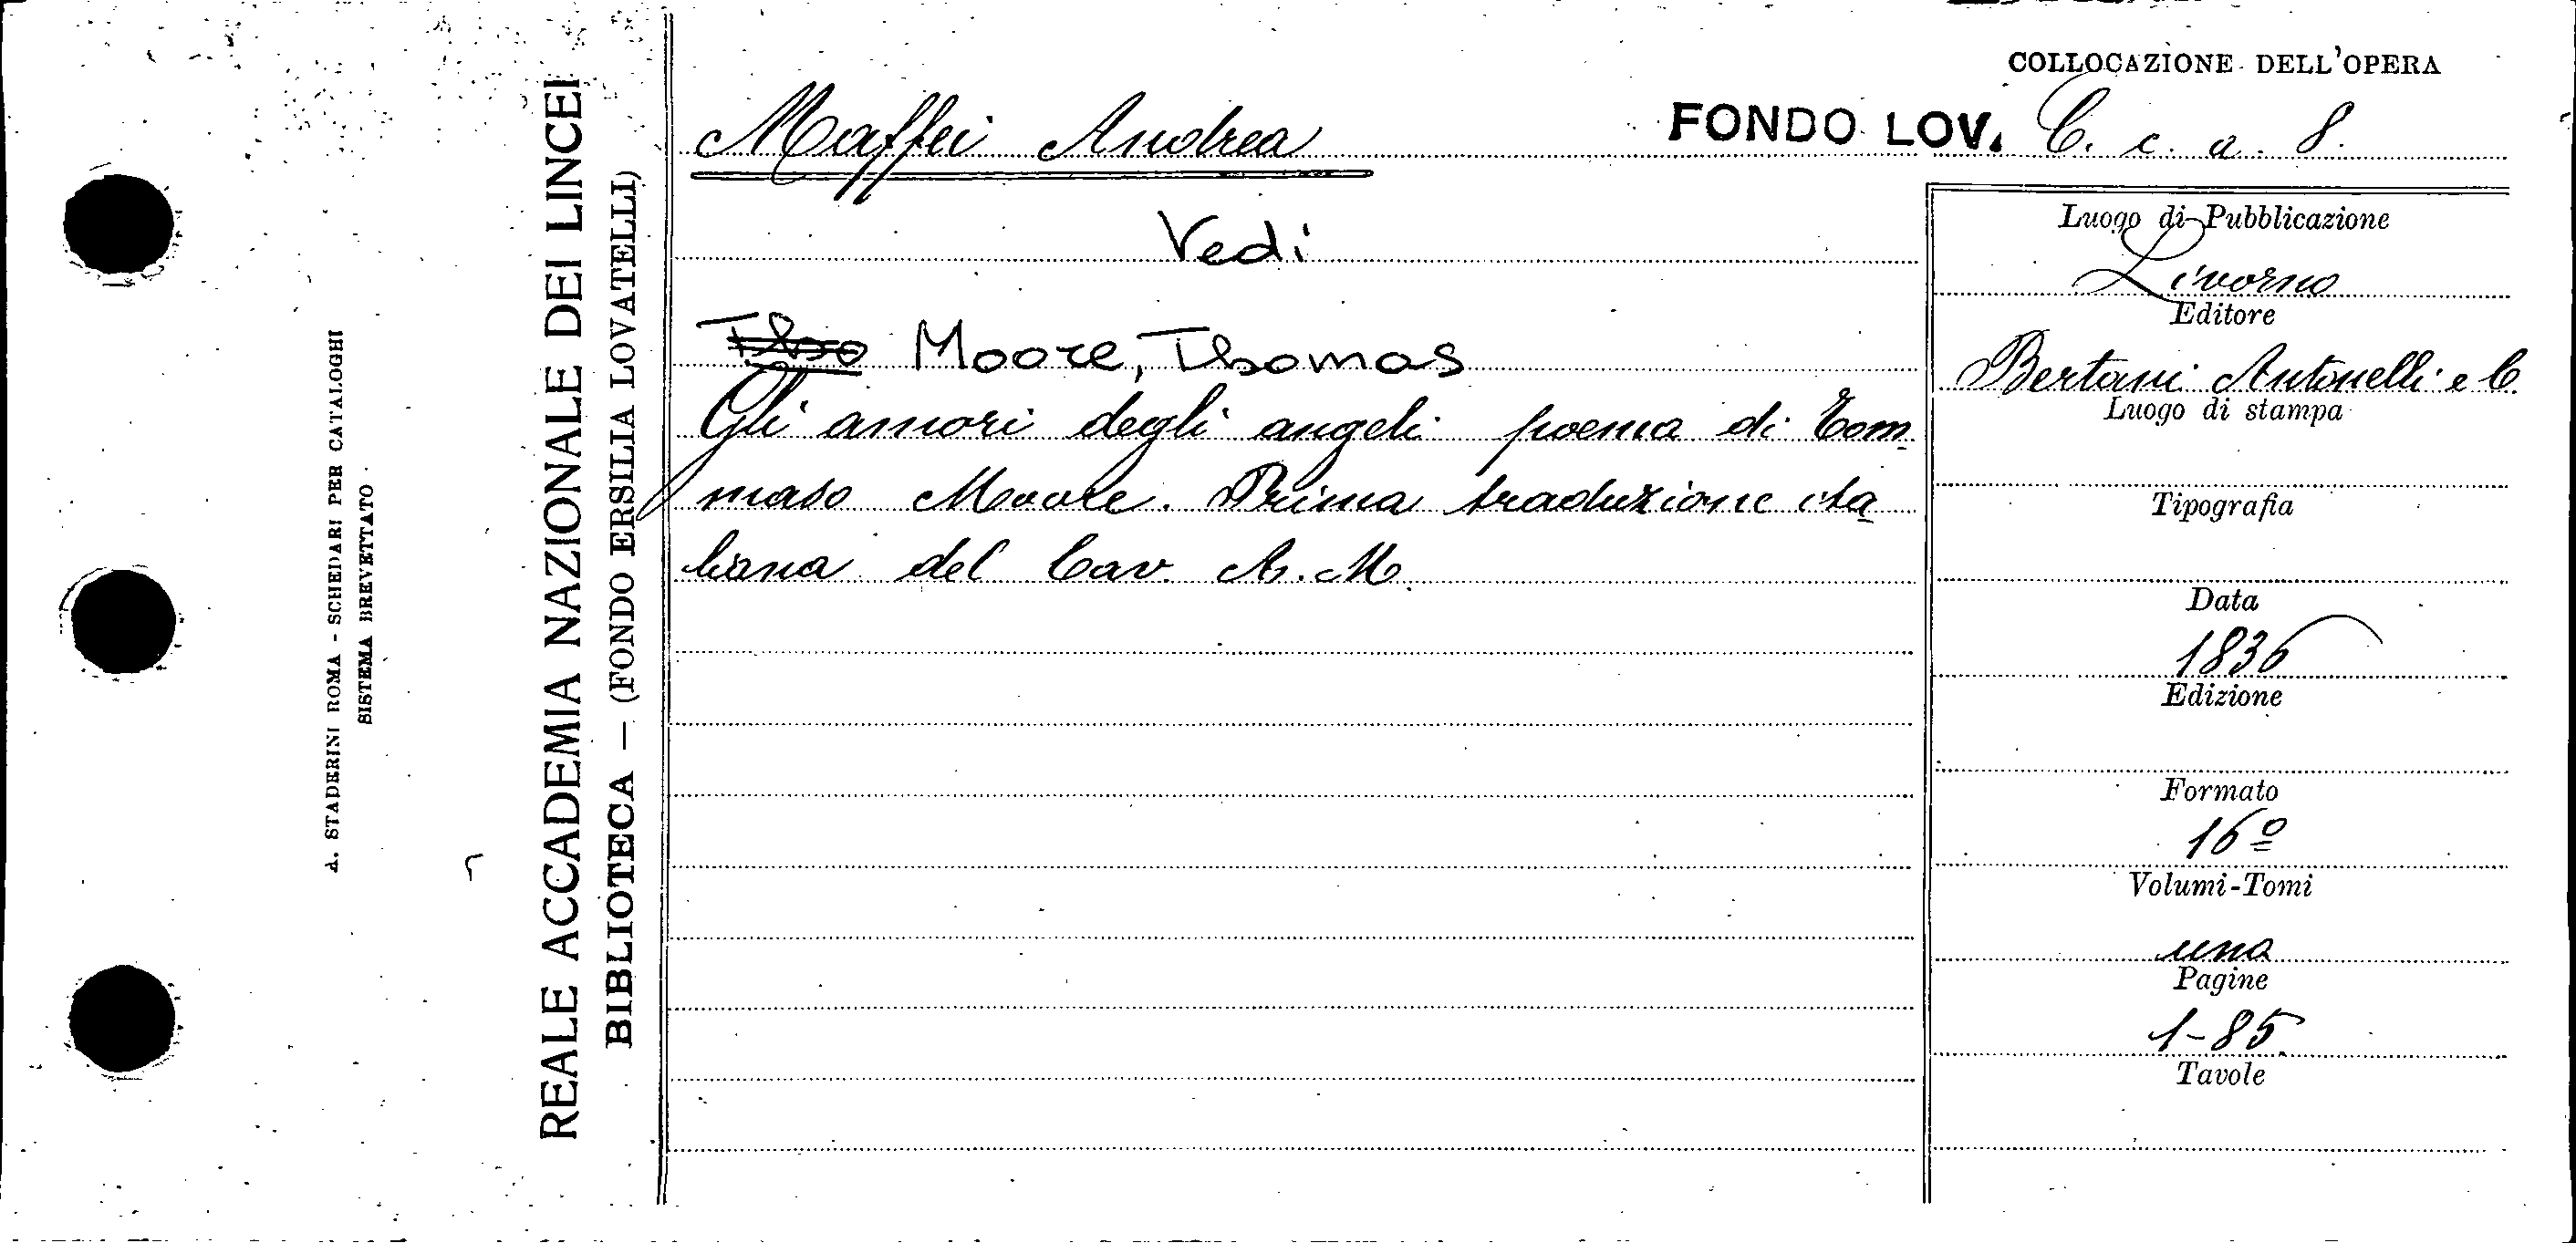 COLLOCAZIONE DELL'OPERA
Maffei Andrea
FONDO LOV. C. c. a. 8.
Vedi
Moore, Thomas
Gli amori degli angeli poema di Tom-
maso Moore. Prima traduzione ita-
liana del Cav. A. M.
Luogo di Pubblicazione
Livorno
Editore
Bertani Antonelli e C.
Luogo di stampa
Tipografia
Data
1836
Edizione
Formato
16º
Volumi-Tomi
uno
Pagine
1-85
Tavole
REALE ACCADEMIA NAZIONALE DEI LINCEI
BIBLIOTECA — (FONDO ERSILIA LOVATELLI)
A. STADERINI ROMA - SCHEDARI PER CATALOGHI
SISTEMA BREVETTATO